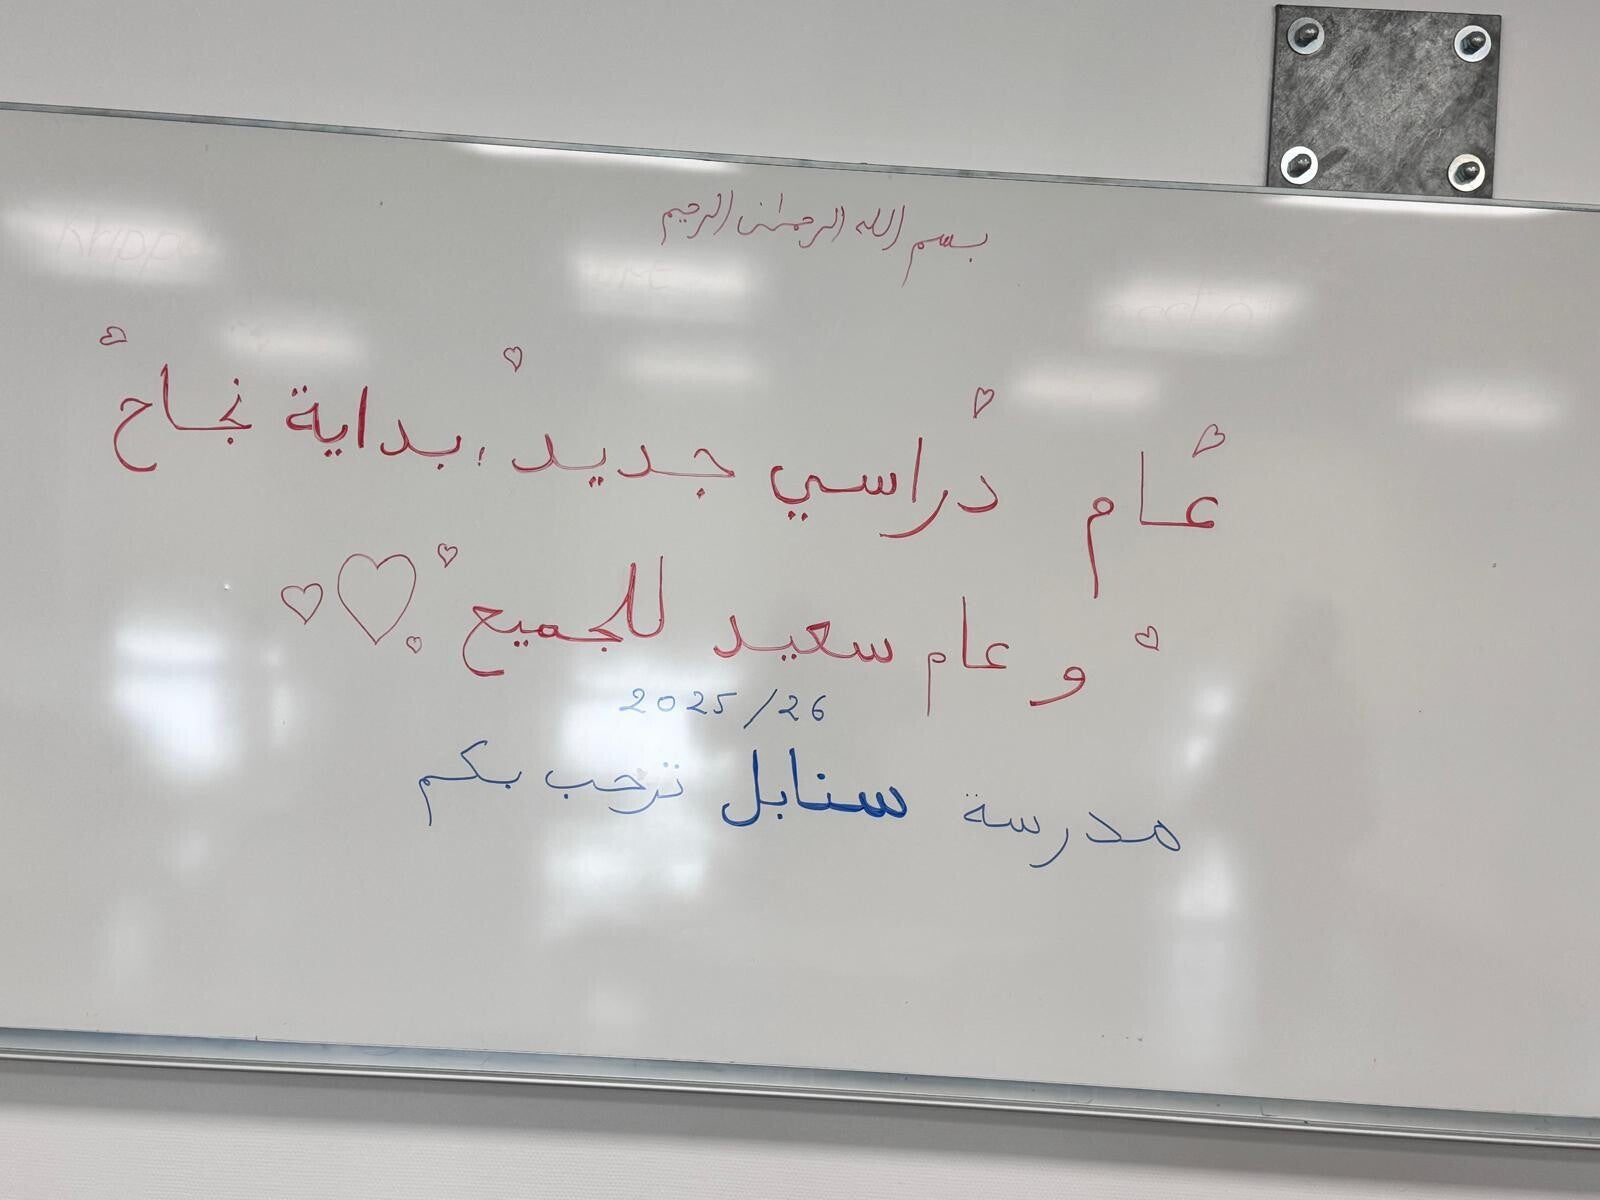 بسم الله الرحمن الرحيم
عام دراسي جديد، بداية نجاح
و عام سعيد للجميع
2025/26
مدرسة سنابل ترحب بكم